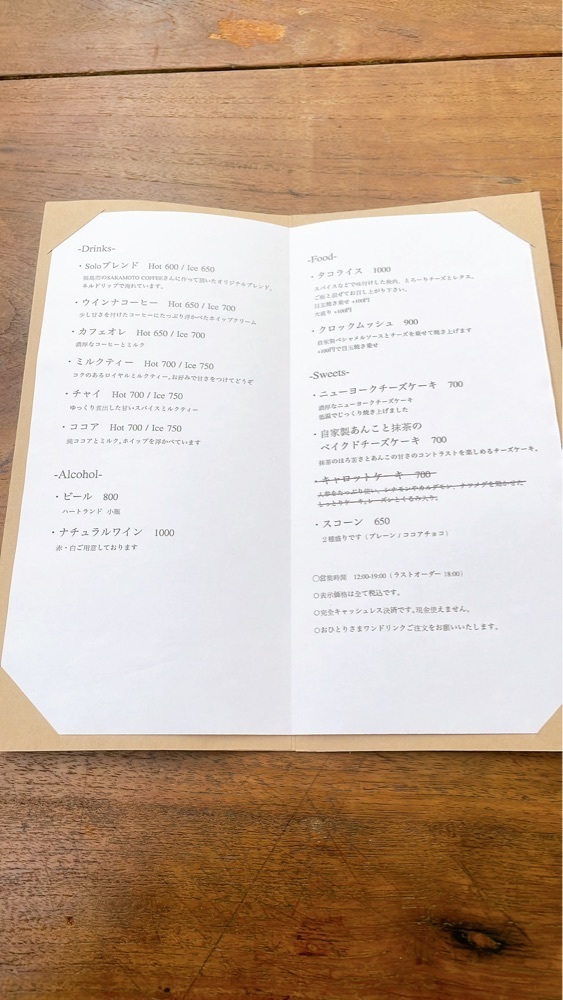 -Drinks-
・Soloブレンド Hot 600 / Ice 650
福島市のSAKAMOTO COFFEEさんに作って頂いたオリジナルブレンド。
ネルドリップで淹れています。
・ウインナコーヒー Hot 650 / Ice 700
少し甘さを付けたコーヒーにたっぷり浮かべたホイップクリーム
・カフェオレ Hot 650 / Ice 700
濃厚なコーヒーとミルク
・ミルクティー Hot 700 / Ice 750
コクのあるロイヤルミルクティー。お好みで甘さをつけてどうぞ
・チャイ Hot 700 / Ice 750
ゆっくり煮出した甘いスパイスミルクティー
・ココア Hot 700 / Ice 750
純ココアとミルク。ホイップを浮かべています
-Alcohol-
・ビール 800
ハートランド 小瓶
・ナチュラルワイン 1000
赤・白ご用意しております
-Food-
・タコライス 1000
スパイスなどで味付けした挽肉、とろーりチーズとレタス。
ご飯と混ぜてお召し上がり下さい。
目玉焼き乗せ +100円
大盛り +100円
・クロックムッシュ 900
自家製ベシャメルソースとチーズを乗せて焼き上げます
+100円で目玉焼き乗せ
-Sweets-
・ニューヨークチーズケーキ 700
濃厚なニューヨークチーズケーキ
低温でじっくり焼き上げました
・自家製あんこと抹茶の
ベイクドチーズケーキ 700
抹茶のほろ苦さとあんこの甘さのコントラストを楽しめるチーズケーキ。
・キャロットケーキ 700
人参をたっぷり使い、シナモンやカルダモン、ナツメグを効かせた
しっとりケーキ。レーズンとくるみ入り。
・スコーン 650
2種盛りです（プレーン / ココアチョコ）
○営業時間 12:00-19:00（ラストオーダー 18:00）
○表示価格は全て税込です。
○完全キャッシュレス決済です。現金使えません。
○おひとりさまワンドリンクご注文をお願いいたします。